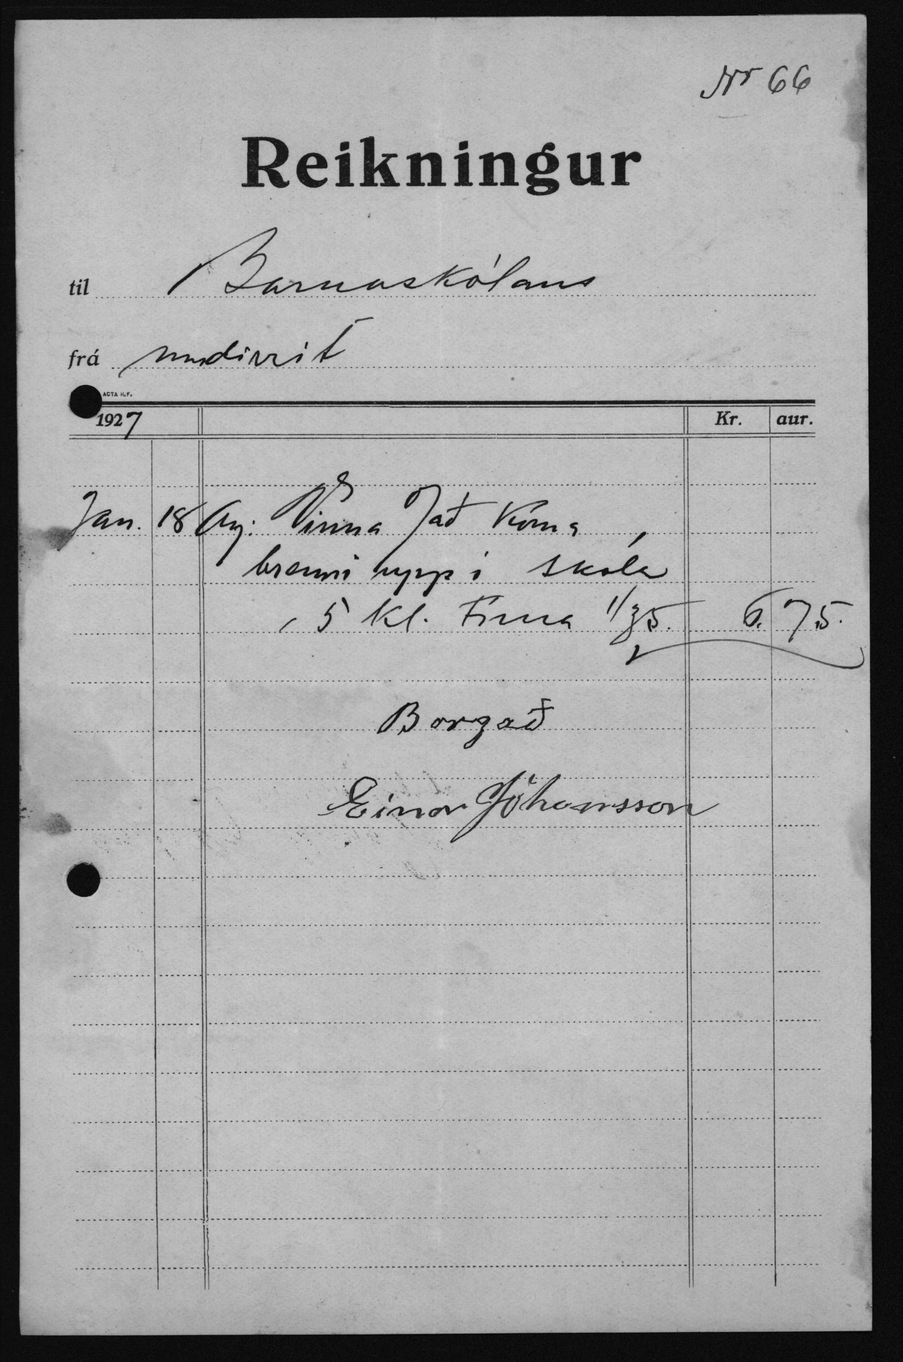 Nr 66
Reikningur
til Barnaskólans
frá undirrit
ACTA H.F.
1927 Kr. aur.
Jan. 18 Vinna að koma
brenni upp í skóla
5 kl. Tíma 1/35. 6. 75.
Borgað
Einar Jóhannsson